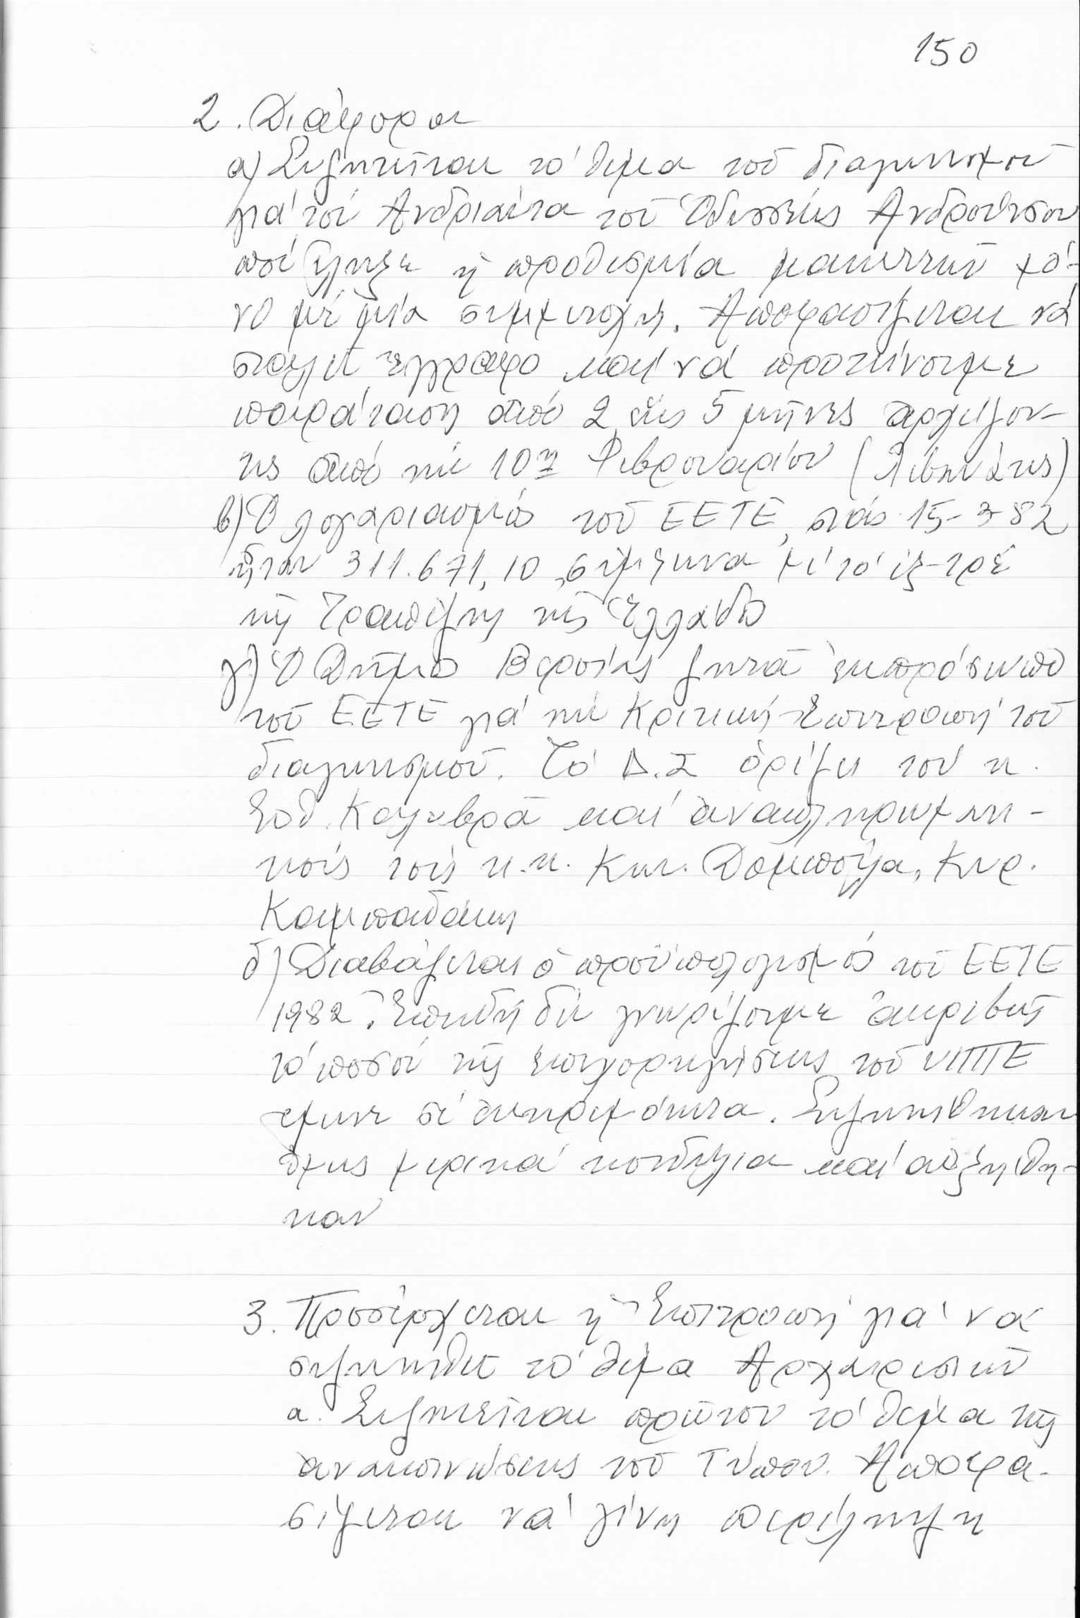 150
2. Διάφορα
α) Συζητεῖται τό θέμα τοῦ διαγωνισμοῦ
γιά τόν Ἀνδριάντα τοῦ Ὀδυσσέως Ἀνδρούτσου
πού ἔληξε ἡ προθεσμία μακεττῶν μό-
νο μέ μία συμμετοχή. Ἀποφασίζεται νά
σταλεῖ ἔγγραφο καί νά προτείνουμε
παράταση ἀπό 2 ἕως 5 μῆνες ἀρχίζον-
τας ἀπό τήν 10η Φεβρουαρίου (Λιβανάτες)
β) Ὁ λογαριασμός τοῦ ΕΕΤΕ, στάς 15-3-82
ἦταν 311.671,10, σύμφωνα μέ τό ἐξ-τρέ
τῆς Τραπέζης τῆς Ἑλλάδο
γ) Ὁ Δῆμο Βεροίας ζητᾶ ἐκπρόσωπο
τοῦ ΕΕΤΕ γιά τήν Κριτική Ἐπιτροπή τοῦ
διαγωνισμοῦ. Τό Δ.Σ ὁρίζει τόν κ.
Σοδ. καί ἀναπληρωμα-
τικούς τούς κ.κ. Κων. Κυρ.
Καμπαδάκη
δ) Διαβάζεται ὁ προϋπολογισμός τοῦ ΕΕΤΕ
1982. Ἐπειδή δέν γνωρίζουμε ἀκριβῶς
τό ποσόν τῆς ἐπιχορηγήσεως τοῦ ΥΠΠΕ
ἔμεινε σέ ἐκκρεμότητα. Συζητήθηκαν
ὅμως μερικά κονδύλια καί αὐξήθη-
καν
3. Προσέρχεται ἡ Ἐπιτροπή γιά νά
συζητηθεῖ τό θέμα Ἀρχαιρεσιῶν
α. Συζητεῖται πρῶτον τό θέμα τῆς
ἀνακοινώσεως τοῦ Τύπου. Ἀποφα-
σίζεται νά γίνη περίληψη